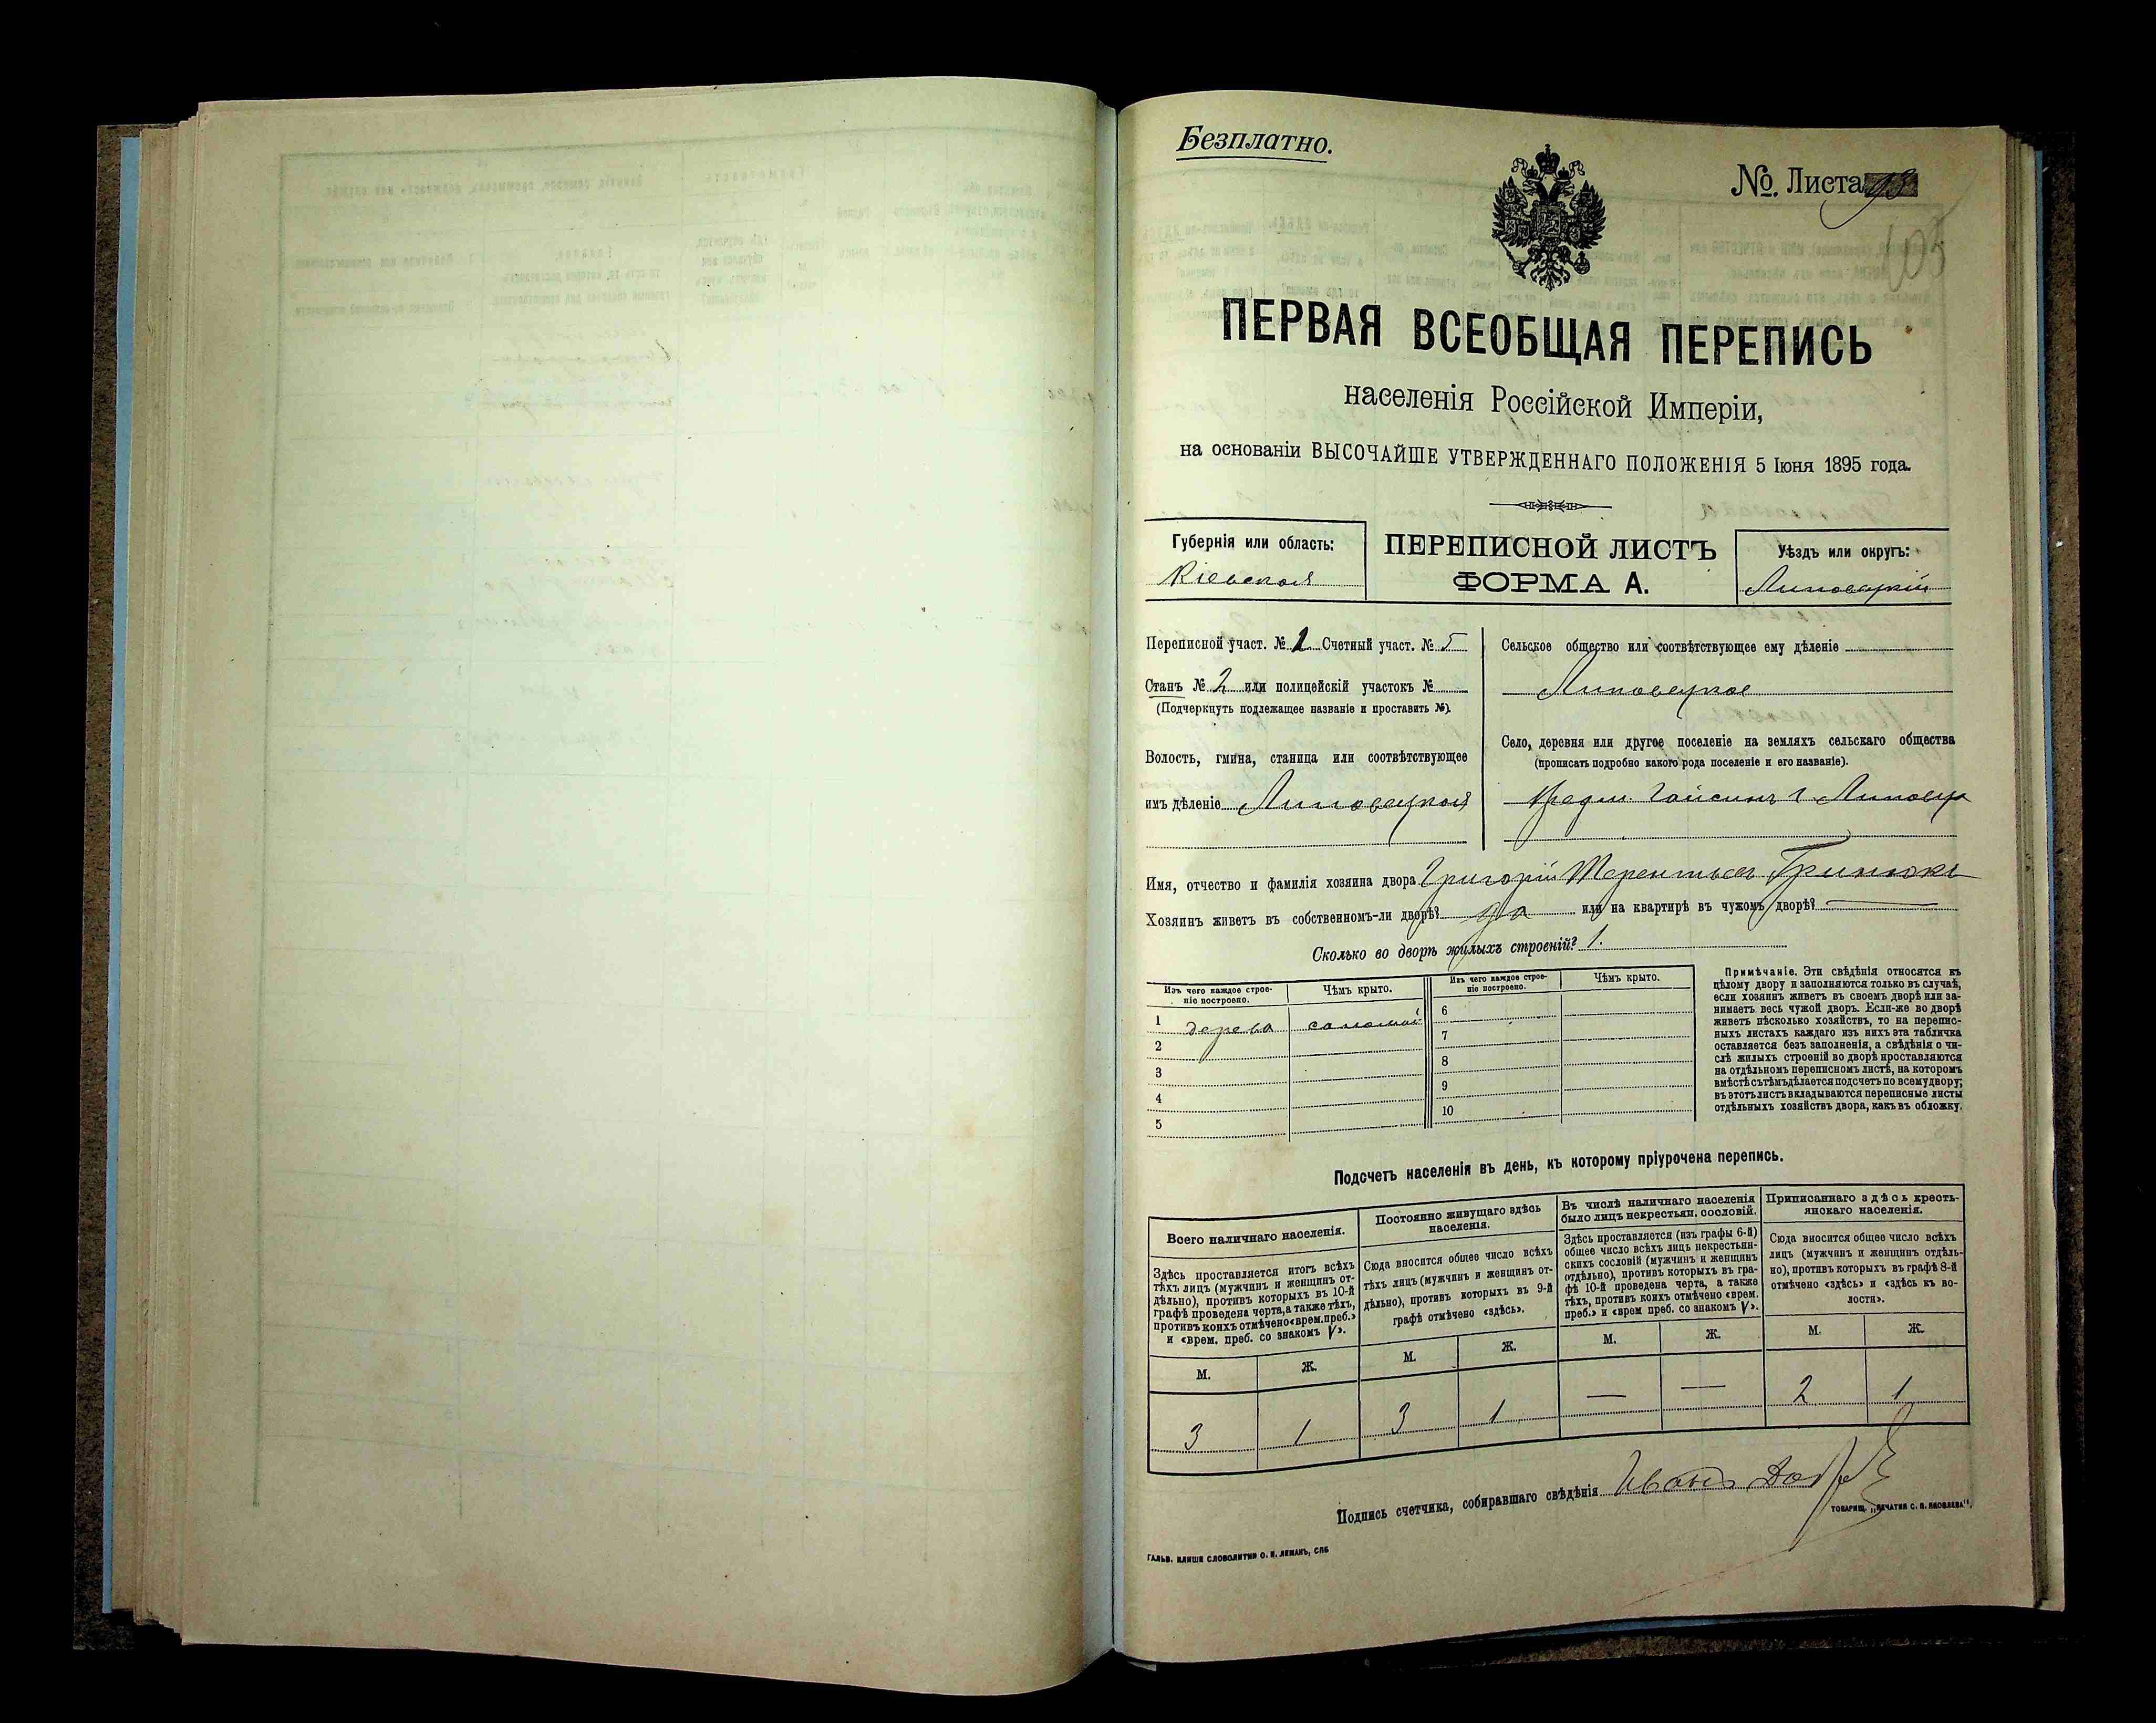 Безплатно.
№. Листа 93
105
ПЕРВАЯ ВСЕОБЩАЯ ПЕРЕПИСЬ
населенія Россійской Имперіи,
на основаніи ВЫСОЧАЙШЕ УТВЕРЖДЕННАГО ПОЛОЖЕНІЯ 5 Іюня 1895 года.
Губернія или область:
Кіевская
ПЕРЕПИСНОЙ ЛИСТЪ
ФОРМА А.
Уѣздъ или округъ:
Липовецкій
Переписной участ. № 1 Счетный участ. № 5
Станъ № 2 или полицейскій участокъ №
(Подчеркнуть подлежащее названіе и проставить №).
Волость, гмина, станица или соотвѣтствующее
имъ дѣленіе Липовецкая
Сельское общество или соотвѣтствующее ему дѣленіе
Липовецкое
Село, деревня или другое поселеніе на земляхъ сельскаго общества
(прописать подробно какого рода поселеніе и его названіе).
предм. Гайсинъ г. Липовца
Имя, отчество и фамилія хозяина двора Григорій Терентьевъ Гринюкъ
Хозяинъ живетъ въ собственномъ-ли дворѣ? да или на квартирѣ въ чужомъ дворѣ? —
Сколько во дворѣ жилыхъ строеній? 1.
Изъ чего каждое строе-
ніе построено.
Чѣмъ крыто.
1 дерева соломой
2
3
4
5
Изъ чего каждое строе-
ніе построено.
Чѣмъ крыто.
6
7
8
9
10
Примѣчаніе. Эти свѣдѣнія относятся къ
цѣлому двору и заполняются только въ случаѣ,
если хозяинъ живетъ въ своемъ дворѣ или за-
нимаетъ весь чужой дворъ. Если-же во дворѣ
живетъ нѣсколько хозяйствъ, то на перепис-
ныхъ листахъ каждаго изъ нихъ эта табличка
оставляется безъ заполненія, а свѣдѣнія о чи-
слѣ жилыхъ строеній во дворѣ проставляются
на отдѣльномъ переписномъ листѣ, на которомъ
вмѣстѣ съ тѣмъ дѣлается подсчетъ по всему двору;
въ этотъ листъ вкладываются переписные листы
отдѣльныхъ хозяйствъ двора, какъ въ обложку.
Подсчетъ населенія въ день, къ которому пріурочена перепись.
Всего наличнаго населенія.
Здѣсь проставляется итогъ всѣхъ
тѣхъ лицъ (мужчинъ и женщинъ от-
дѣльно), противъ которыхъ въ 10-й
графѣ проведена черта, а также тѣхъ,
противъ коихъ отмѣчено «врем. преб.»
и «врем. преб. со знакомъ V».
М. Ж.
3 1
Постоянно живущаго здѣсь
населенія.
Сюда вносится общее число всѣхъ
тѣхъ лицъ (мужчинъ и женщинъ от-
дѣльно), противъ которыхъ въ 9-й
графѣ отмѣчено «здѣсь».
М. Ж.
3 1
Въ числѣ наличнаго населенія
было лицъ некрестьян. сословій.
Здѣсь проставляется (изъ графы 6-й)
общее число всѣхъ лицъ некрестьян-
скихъ сословій (мужчинъ и женщинъ
отдѣльно), противъ которыхъ въ гра-
фѣ 10-й проведена черта, а также
тѣхъ, противъ коихъ отмѣчено «врем.
преб.» и «врем преб. со знакомъ V».
М. Ж.
— —
Приписаннаго здѣсь кресть-
янскаго населенія.
Сюда вносится общее число всѣхъ
лицъ (мужчинъ и женщинъ отдѣль-
но), противъ которыхъ въ графѣ 8-й
отмѣчено «здѣсь» и «здѣсь къ во-
лости».
М. Ж.
2 1
Подпись счетчика, собиравшаго свѣдѣнія Иванъ
ТОВАРИЩ. „ПЕЧАТНЯ С. П. ЯКОВЛЕВА".
ГАЛЬВ. КЛИШЕ СЛОВОЛИТНИ О. И. ЛЕМАНЪ, СПБ